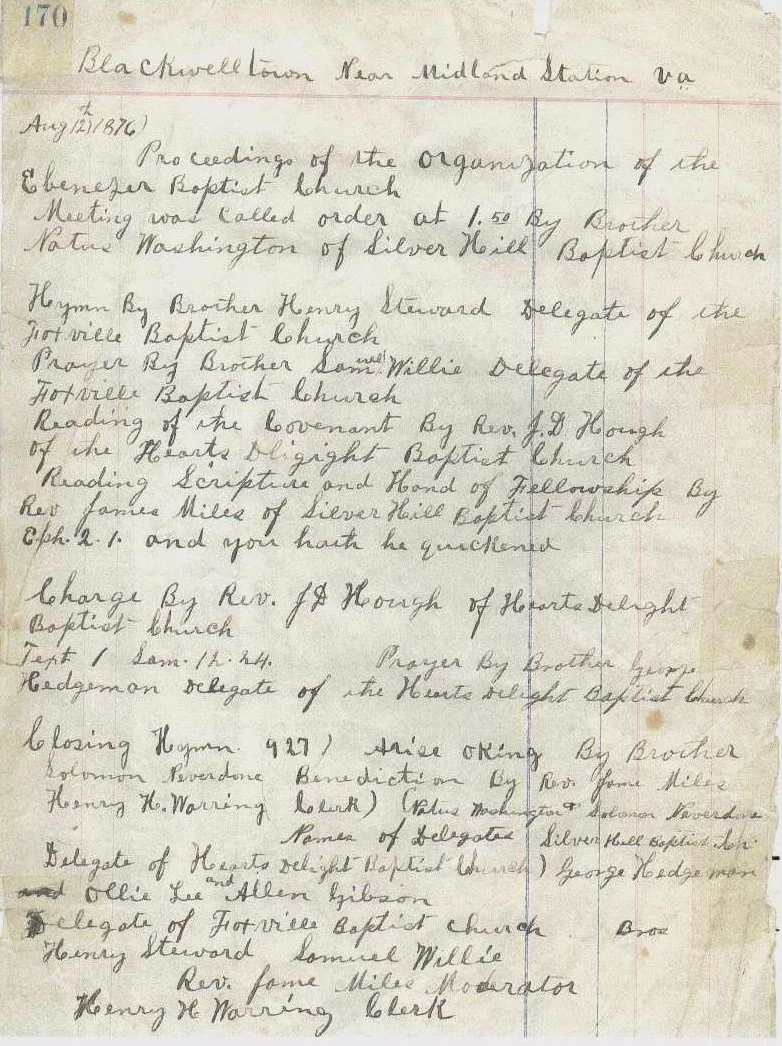 170
Blackwelltown Near Midland Station Va
Aug 12th 1876)
Proceedings of the Organization of the
Ebenezer Baptist Church
Meeting was called order at 1.50 By Brother
Natus Washington of Silver Hill Baptist Church
Hymn By Brother Henry Steward Delegate of the
Foxville Baptist Church
Prayer By Brother Samuel Willie Delegate of the
Foxville Baptist Church
Reading of the Covenant By Rev. J.D Hough
of the Hearts Dligight Baptist Church
Reading Scripture and Hand of Fellowship By
Rev James Miles of Silver Hill Baptist Church
Eph. 2. 1. and you hath he quickened
Charge By Rev. JD Hough of Hearts Delight
Baptist Church
Text 1 Sam. 12. 24. Prayer By Brother George
Hedgeman Delegate of the Hearts Delight Baptist Church
Closing Hymn. 927) Arise O King By Brother
Solomon Neverdone Benediction By Rev. Jame Miles
Henry H. Warring Clerk) (Natus Washington & Solomon Neverdone
Names of Delegates Silver Hill Baptist. Ch.
Delegate of Hearts Delight Baptist Church) George Hedgeman
and Ollie Lee and Allen Gibson
Delegate of Foxville Baptist church Bros
Henry Steward Samuel Willie
Rev. Jame Miles Moderator
Henry H Warring Clerk